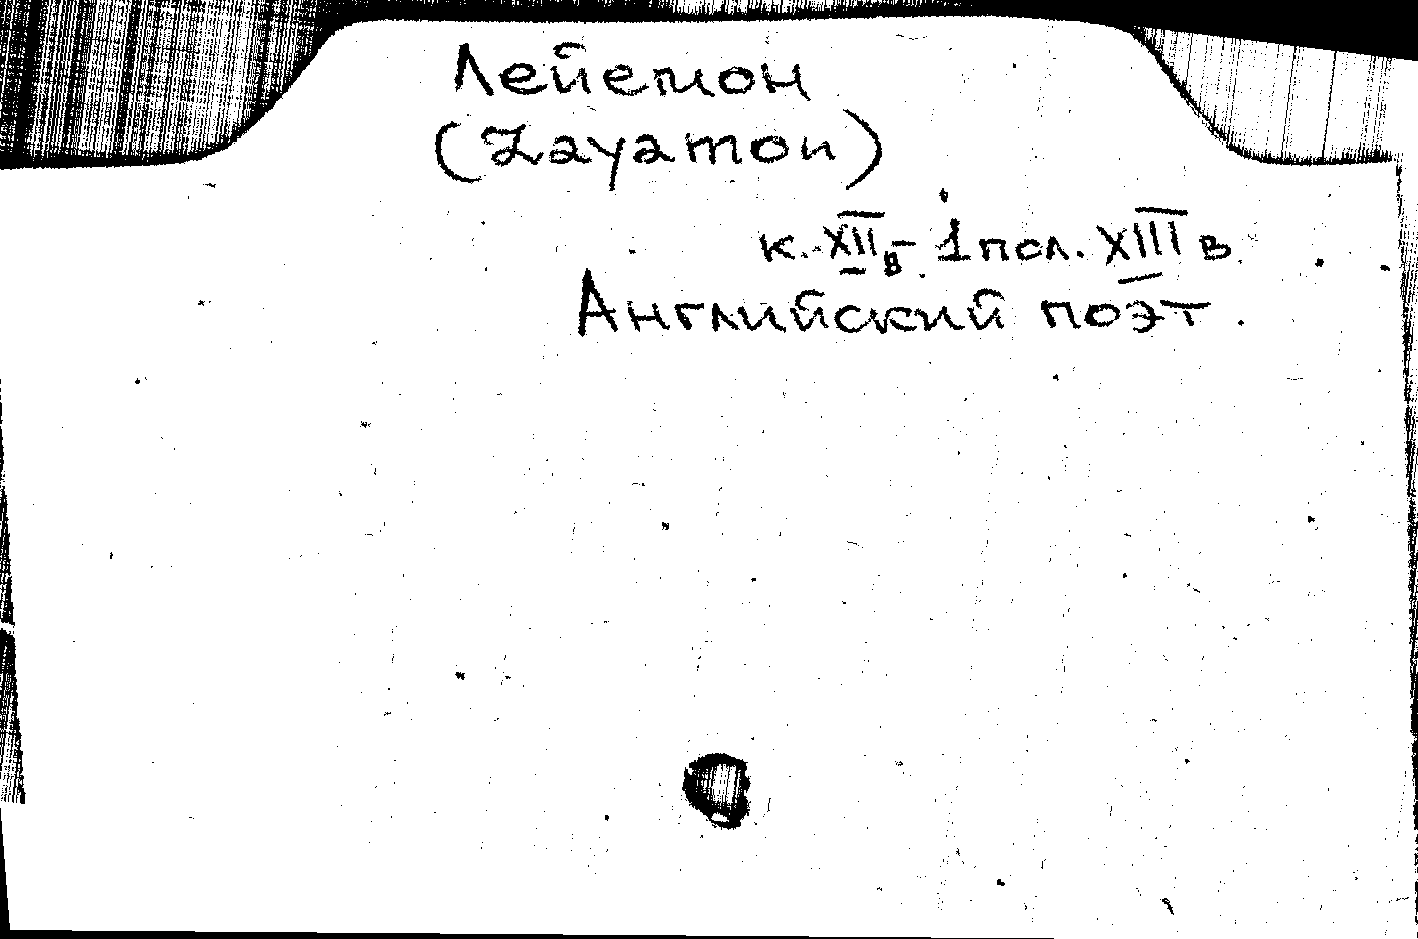 Лейемон
(Layamon)
к. XII в. - 1 пол. XIII в.
Английский поэт.